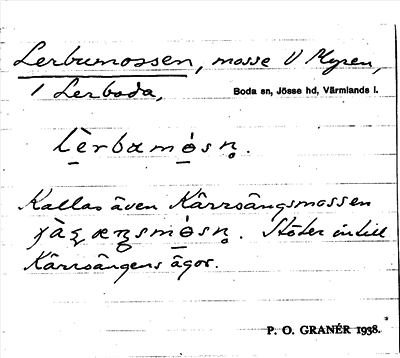 Lerbumossen, mosse V Myren,
i Lerboda,
Boda sn, Jösse hd, Värmlands l.
lèrbamòsn̥.
Kallas även Kärrsängsmossen
Stöter intill
Kärrsängens ägor.
P. O. GRANÉR 1938.